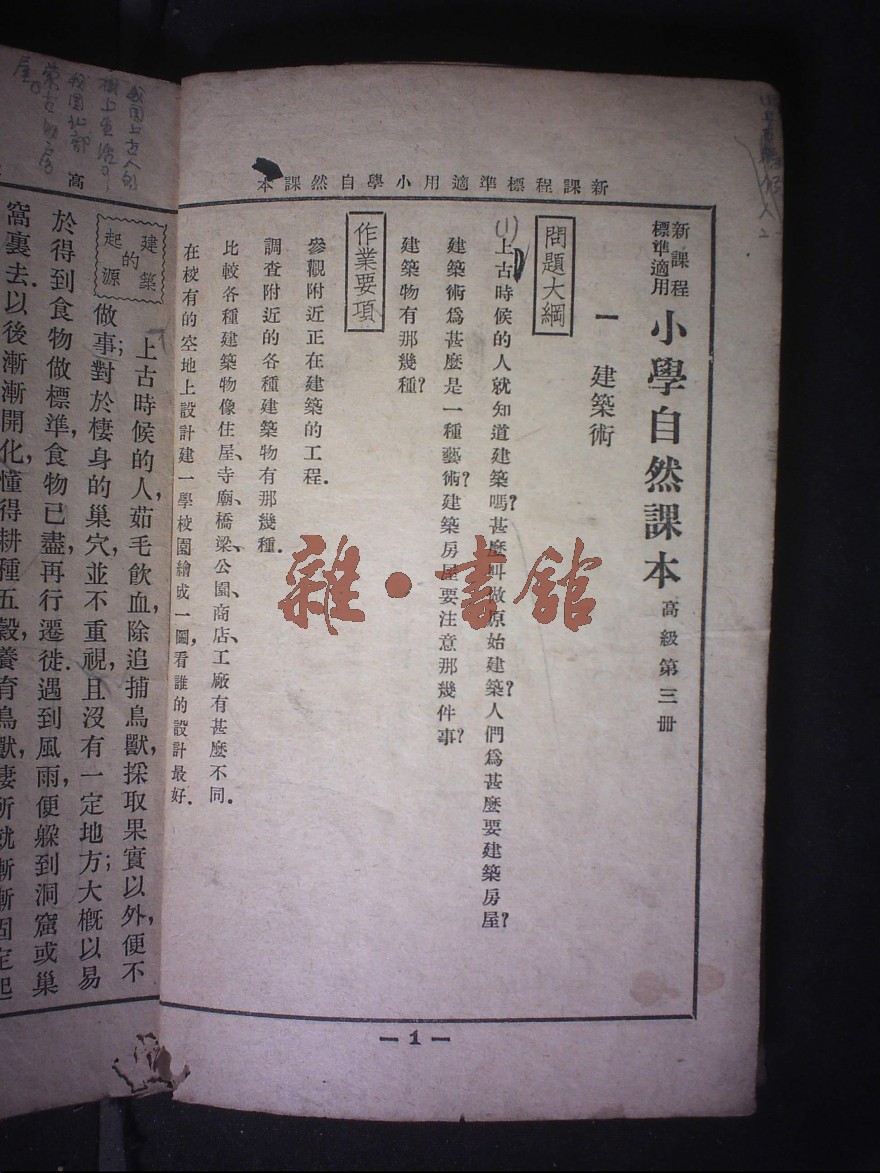 新課程標準適用小學自然課本
新課程標準適用 小學自然課本 高級第三冊
一 建築術
問題大綱
(1)上古時候的人就知道建築嗎?甚麼叫做原始建築?人們爲甚麼要建築房屋?
建築術爲甚麼是一種藝術?建築房屋要注意那幾件事?
建築物有那幾種?
作業要項
參觀附近正在建築的工程.
調查附近的各種建築物有那幾種.
比較各種建築物像住屋、寺廟、橋梁、公園、商店、工廠有甚麼不同.
在校有的空地上設計建一學校園繪成一圖,看誰的設計最好.
— 1 —
雜·書館
高
建築的起源
上古時候的人,茹毛飲血,除追捕鳥獸,採取果實以外,便不
做事;對於棲身的巢穴,並不重視,且沒有一定地方;大概以易
於得到食物做標準,食物已盡,再行遷徙.遇到風雨,便躲到洞窟或巢
窩裏去.以後漸漸開化,懂得耕種五穀,養育鳥獸,棲所就漸漸固定起
我國上古人
樹上生活
我國北部
蒙古
屋